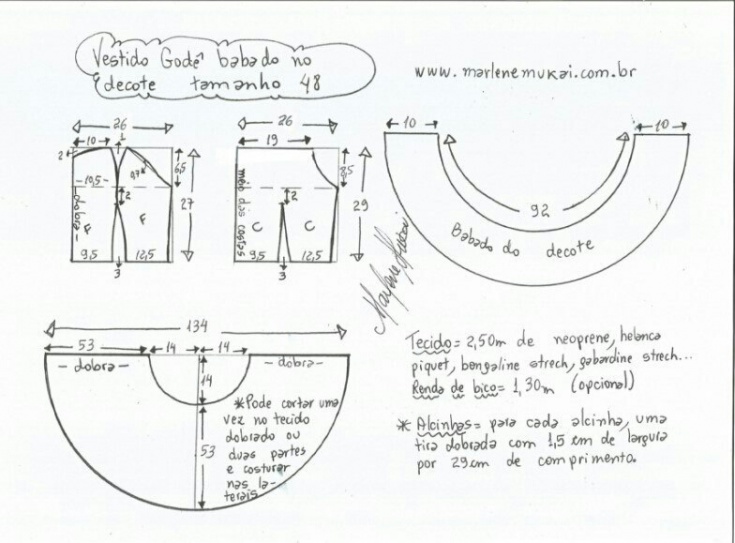 Vestido Godê babado no
decote tamanho 48
www.marlenemukai.com.br
26
10
1
2
10,5
9,7
6,5
27
2
dobra
F
F
9,5
12,5
3
26
19
8,5
29
2
meio das costas
C
C
9,5
12,5
3
10
10
92
Babado do decote
Marlene Mukai
134
53
14
14
- dobra -
- dobra -
14
53
*Pode cortar uma
vez no tecido
dobrado ou
duas partes
e costurar
nas la-
terais
Tecido= 2,50m de neoprene, helanca
piquet, bengaline strech, gabardine strech...
Renda de bico= 1,30m (opcional)
* Alcinhas= para cada alcinha, uma
tira dobrada com 1,5 cm de largura
por 29cm de comprimento.